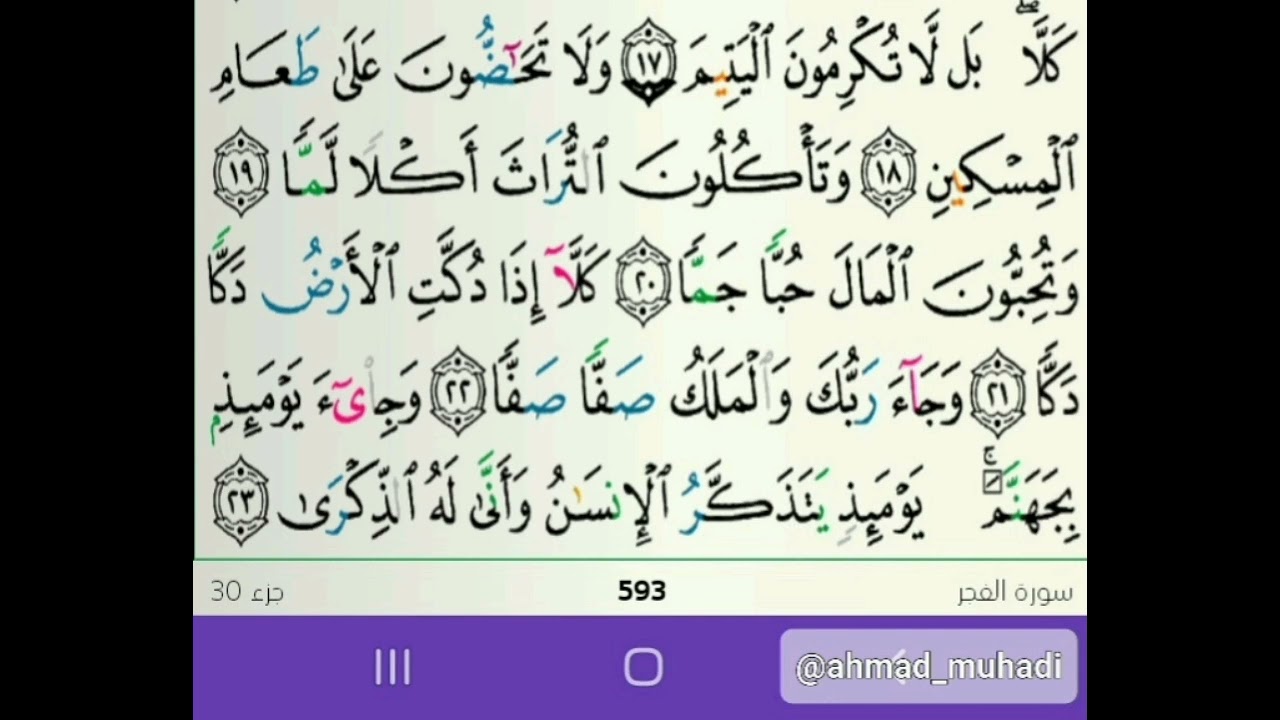 كَلَّاۖ بَل لَّا تُكْرِمُونَ ٱلْيَتِيمَ ١٧ وَلَا تَحَٰٓضُّونَ عَلَىٰ طَعَامِ
ٱلْمِسْكِينِ ١٨ وَتَأْكُلُونَ ٱلتُّرَاثَ أَكْلًا لَّمًّا ١٩
وَتُحِبُّونَ ٱلْمَالَ حُبًّا جَمًّا ٢٠ كَلَّآ إِذَا دُكَّتِ ٱلْأَرْضُ دَكًّا
دَكًّا ٢١ وَجَآءَ رَبُّكَ وَٱلْمَلَكُ صَفًّا صَفًّا ٢٢ وَجِا۟ىٓءَ يَوْمَئِذٍۭ
بِجَهَنَّمَۚ يَوْمَئِذٍ يَتَذَكَّرُ ٱلْإِنسَٰنُ وَأَنَّىٰ لَهُ ٱلذِّكْرَىٰ ٢٣
سورة الفجر 593 جزء 30
@ahmad_muhadi